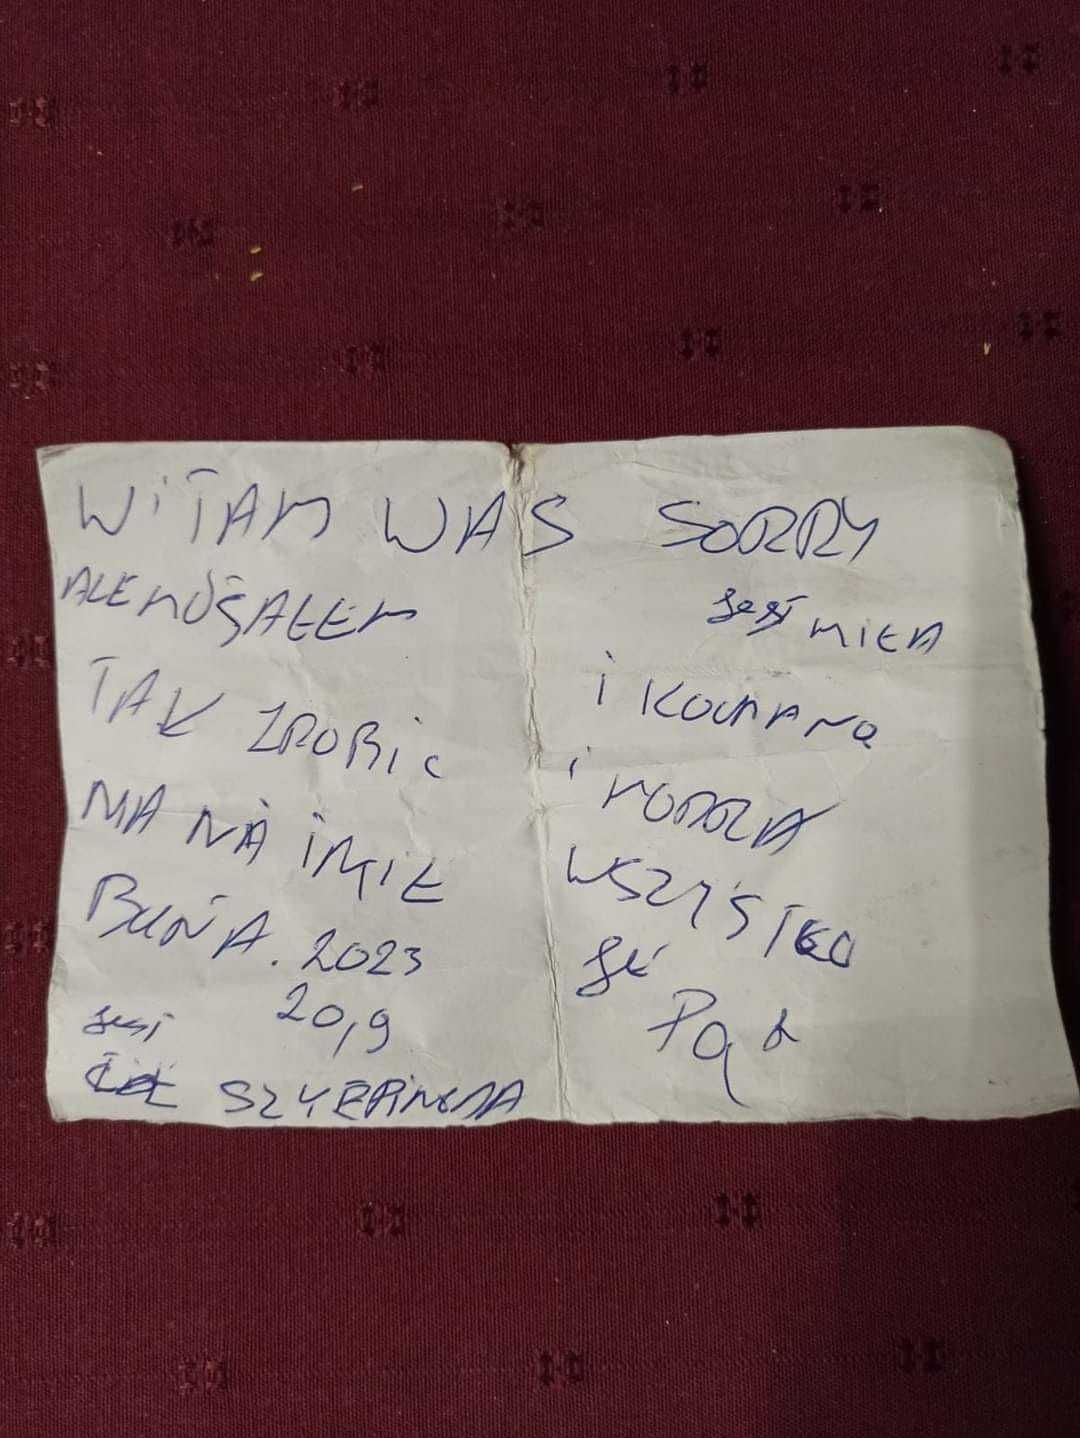 WiTAM WAS SORRY
ALE MUSAŁEM
TAK ZROBIC
MA NA IMIE
BUNIA. 2023
20,9
jest
SZYERINCTA
jest MIŁA
i KOCHANA
i MODRA
WSZYSTKO
JE